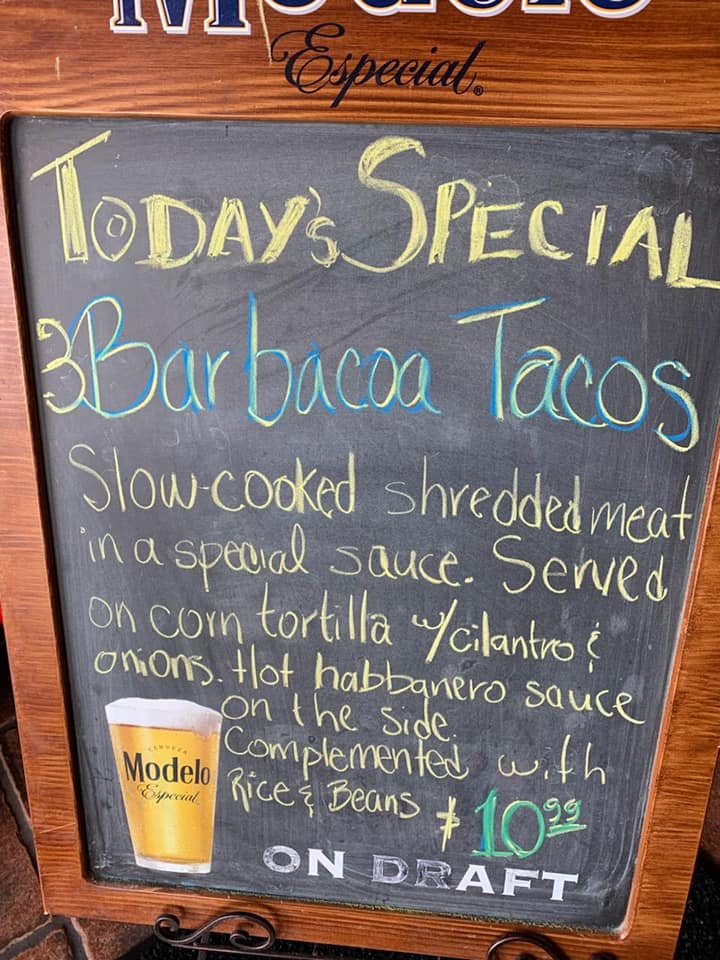 Modelo
Especial®
TODAY'S SPECIAL
3 Barbacoa Tacos
Slow-cooked shredded meat
in a special sauce. Served
on corn tortilla w/cilantro &
onions. Hot habbanero sauce
on the side.
Complemented with
Rice & Beans $10.99
CERVEZA
Modelo
Especial
ON DRAFT